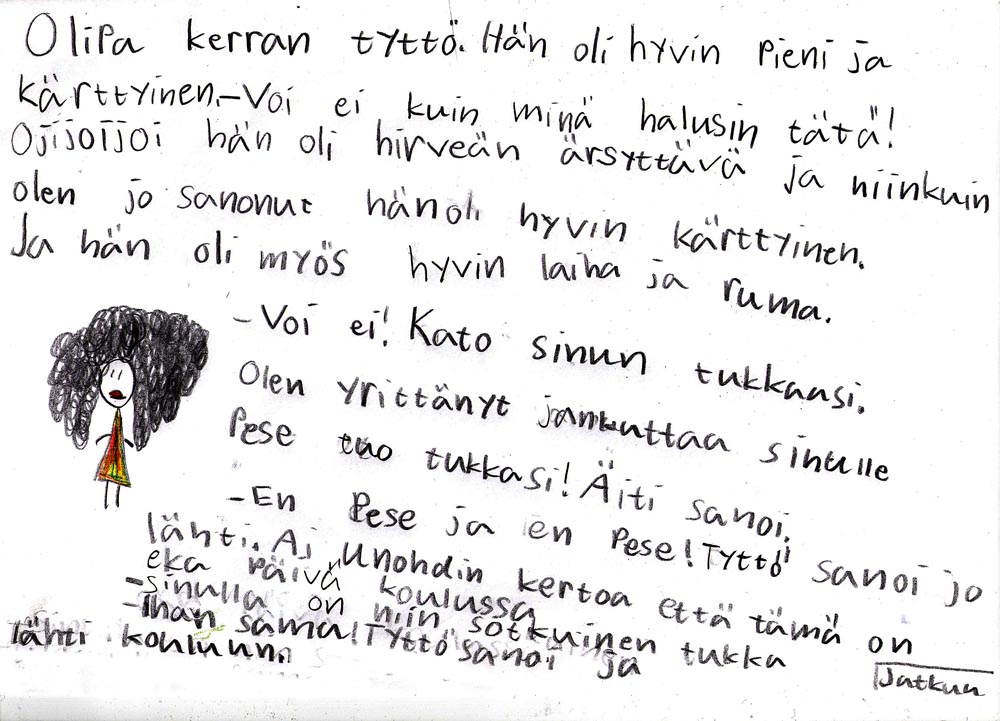 Olipa kerran tyttö. Hän oli hyvin pieni ja
kärttyinen.-Voi ei kuin minä halusin tätä!
Ojijoijoi hän oli hirveän ärsyttävä ja niinkuin
olen jo sanonut hän oli hyvin kärttyinen.
Ja hän oli myös hyvin laiha ja ruma.
-Voi ei! Kato sinun tukkaasi.
Olen yrittänyt jankuttaa sinulle
Pese tuo tukkasi! Äiti sanoi.
-En Pese ja en Pese! Tyttö sanoi jo
lähti. Ai Unohdin kertoa että tämä on
eka päivä koulussa
-sinulla on niin sotkuinen tukka
-Ihan sama! Tyttö sanoi ja
lähti kouluun.
Jatkuu